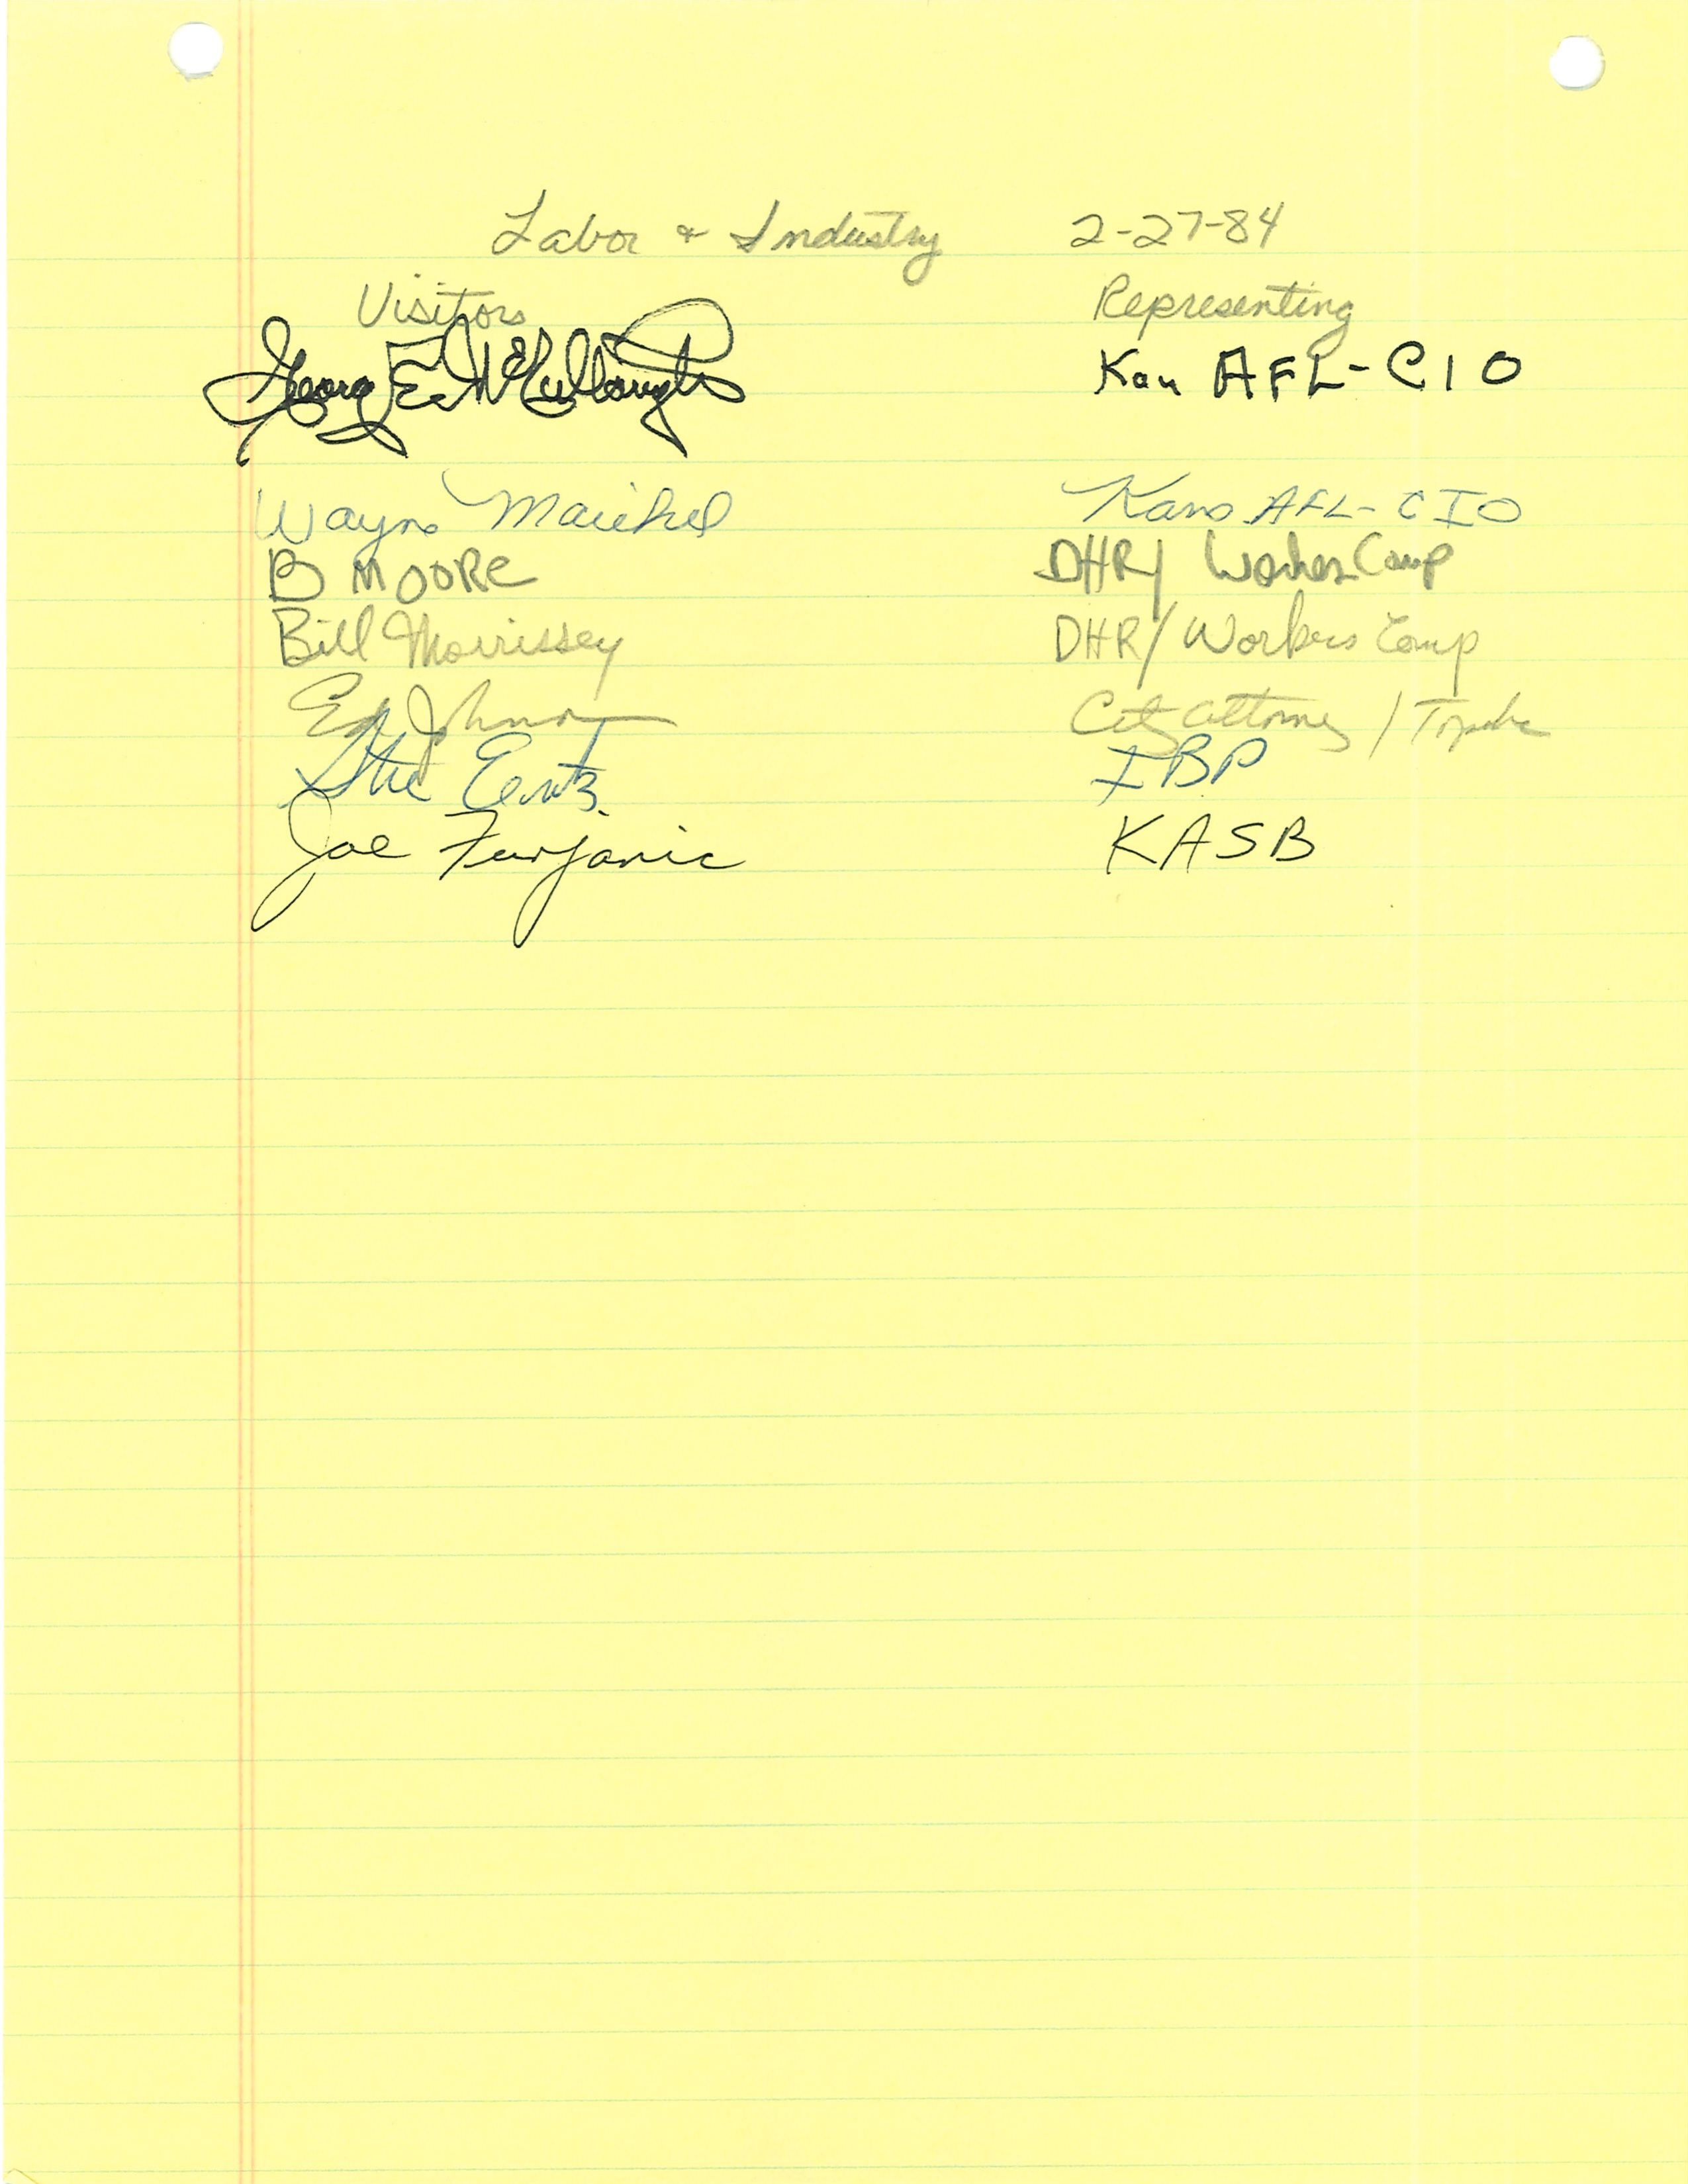 Labor & Industry 2-27-84
Visitors Representing
George E. McCullough Kan AFL-CIO
Wayne Maichel Kans AFL-CIO
B MOORE DHR/ Workers Comp
Bill Morrissey DHR/Workers Comp
Ed Johnson City Attorney / Topeka
IBP
Joe Furjanic KASB